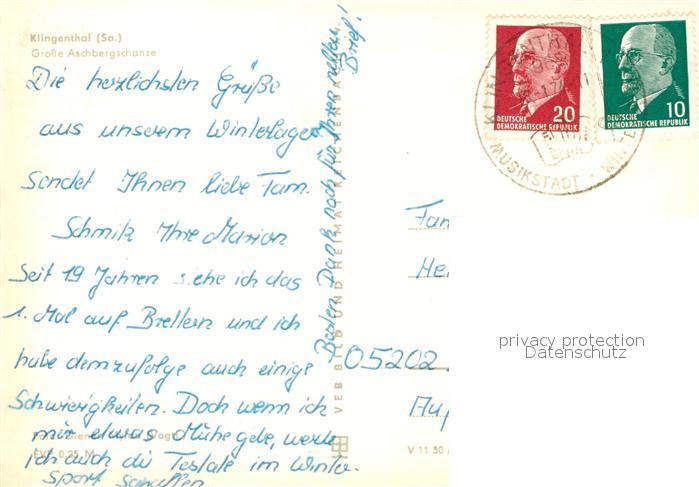 Klingenthal (Sa.)
Große Aschbergschanze
Die herzlichsten Grüße
aus unserem Winterlager
Sendet Ihnen liebe Fam.
Schmik Ihre Marion
Seit 19 Jahren stehe ich das
1. Mal auf Brettern und ich
habe demzufolge auch einige
Schwierigkeiten. Doch wenn ich
mir etwas Mühe gebe, werde
ich auch die Testate im Winter-
sport schaffen
EVP 0,25 M
Besten Dank noch für Ihren netten
Brief!
VEB BILD UND HEIMAT REICHENBACH
20
DEUTSCHE
DEMOKRATISCHE REPUBLIK
10
DEUTSCHE
DEMOKRATISCHE REPUBLIK
MUSIKSTADT
Fam
05202
V 11 50
privacy protection
Datenschutz